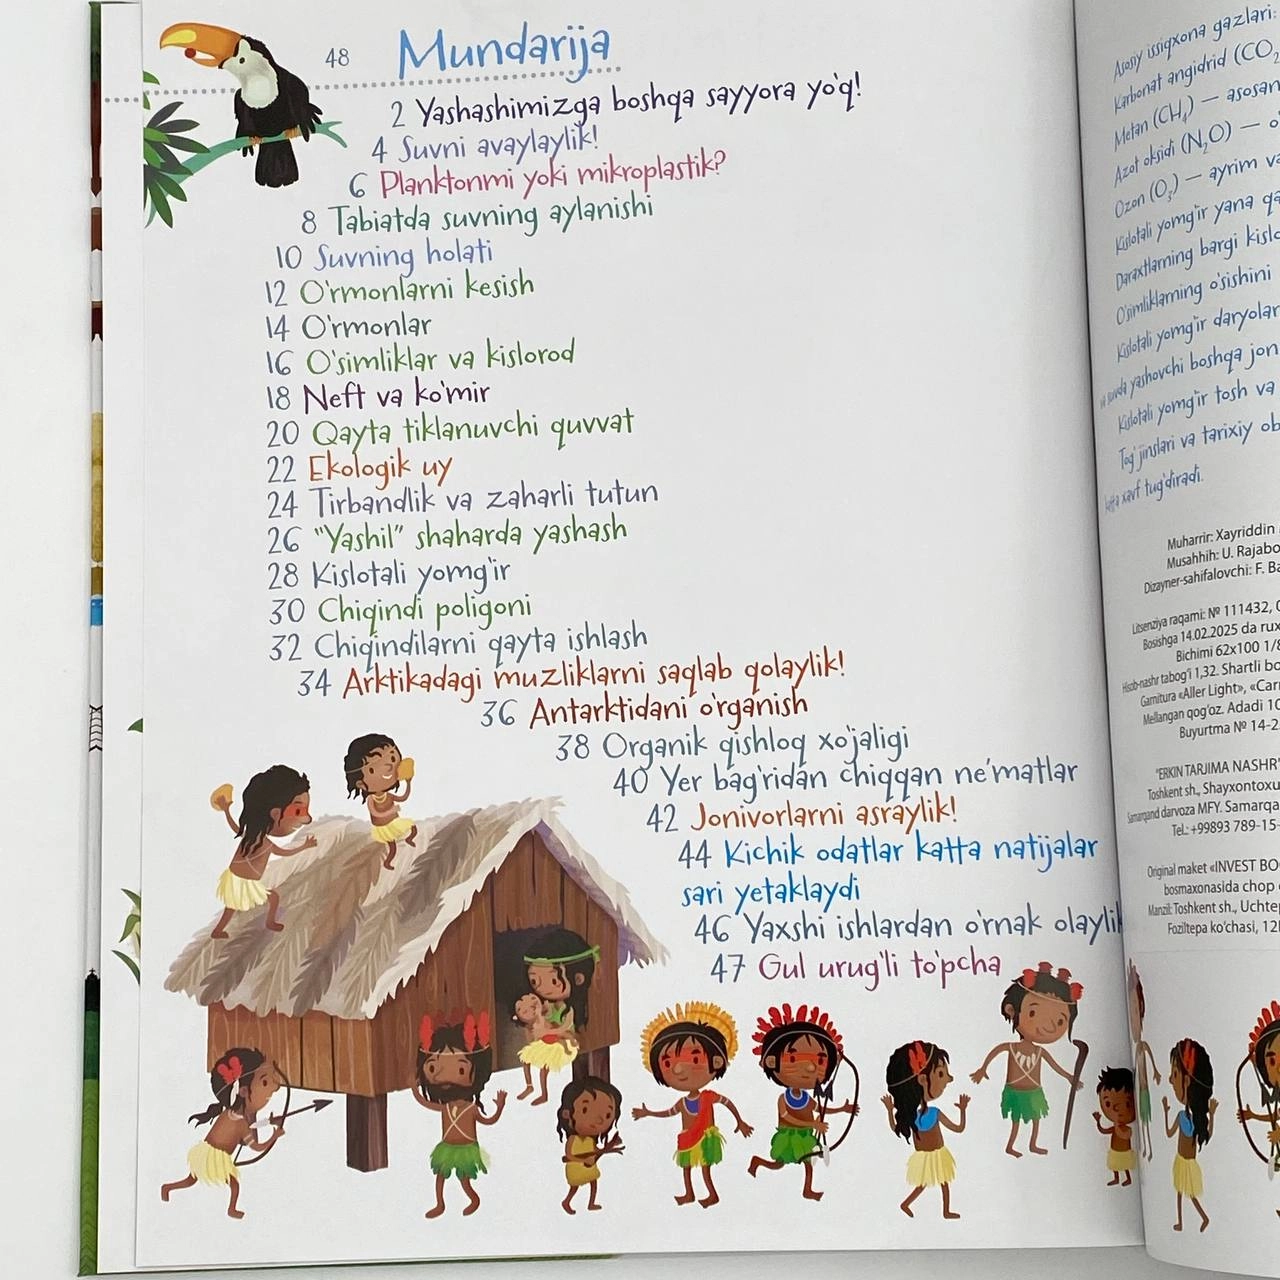 48 Mundarija
2 Yashashimizga boshqa sayyora yo'q!
4 Suvni avaylaylik!
6 Planktonmi yoki mikroplastik?
8 Tabiatda suvning aylanishi
10 Suvning holati
12 O'rmonlarni kesish
14 O'rmonlar
16 O'simliklar va kislorod
18 Neft va ko'mir
20 Qayta tiklanuvchi quvvat
22 Ekologik uy
24 Tirbandlik va zaharli tutun
26 "Yashil" shaharda yashash
28 Kislotali yomg'ir
30 Chiqindi poligoni
32 Chiqindilarni qayta ishlash
34 Arktikadagi muzliklarni saqlab qolaylik!
36 Antarktidani o'rganish
38 Organik qishloq xo'jaligi
40 Yer bag'ridan chiqqan ne'matlar
42 Jonivorlarni asraylik!
44 Kichik odatlar katta natijalar
sari yetaklaydi
46 Yaxshi ishlardan o'rnak olaylik
47 Gul urug'li to'pcha
Asosiy issiqxona gazlari:
Karbonat angidrid (CO2
Metan (CH4) — asosan
Azot oksidi (N2O) —
Ozon (O3) — ayrim va
Kislotali yomg'ir yana
Daraxtlarning bargi
O'simliklarning o'sishini
Kislotali yomg'ir daryolar
va suvda yashovchi boshqa jon
Kislotali yomg'ir tosh va
Tog' jinslari va tarixiy
katta xavf tug'diradi.
Muharrir: Xayriddin
Musahhih: U. Rajabo
Dizayner-sahifalovchi: F.
Litsenziya raqami: № 111432,
Bosishga 14.02.2025 da
Bichimi 62x100 1/8
Hisob-nashr tabog'i 1,32. Shartli
Garnitura «Aller Light»,
Mellangan qog'oz. Adadi
Buyurtma № 14-2
"ERKIN TARJIMA NASHR"
Toshkent sh., Shayxontoxu
Samarqand darvoza MFY. Samarqa
Tel.: +99893 789-15-
Original maket «INVEST
bosmaxonasida chop
Manzil: Toshkent sh., Uchtep
Foziltepa ko'chasi,